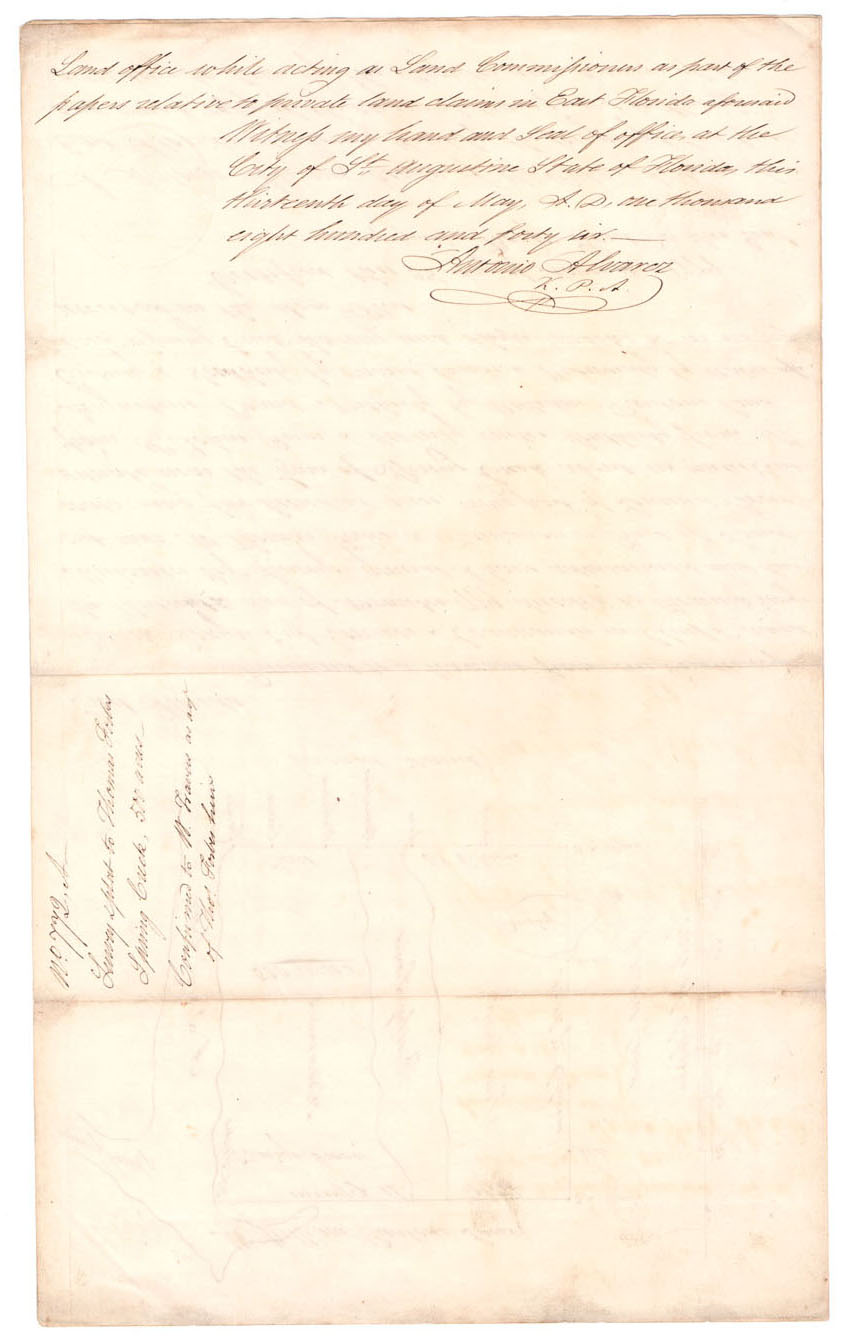 Land office while acting as Land Commissioners as part of the
papers relative to private land claims in East Florida aforesaid
Witness my hand and Seal of office, at the
City of St. Augustine State of Florida, this
thirteenth day of May, A. D. one thousand
eight hundred and forty six.—
Antonio Alvarez
K. P. A.
No
Survey & plat to Thomas Forbes
Spring Creek, 500 acres—
Confirmed to W Travers as
of Thos. Forbes heirs